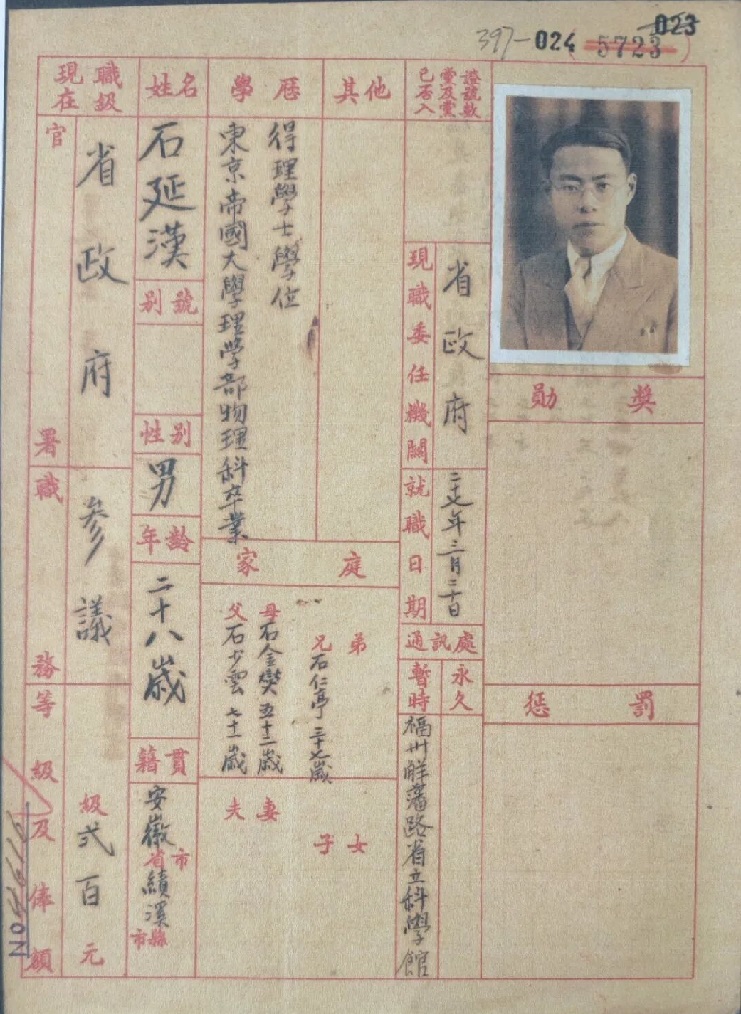 023
397-024 (5723)
職級
現在
官署
省政府
職務
參議
等級及俸額
級 弍百元
姓名
石延漢
別號
性別
男
年齡
二十八歲
籍貫
安徽省市
績溪縣市
學歷
東京帝國大學理學部物理科卒業
得理學士學位
其他
家庭
父 石少雲 七十一歲
母 石金爕 五十二歲
兄弟
石仁亭 三十七歲
夫妻
子女
已否入黨及黨證號數
現職委任機關
省政府
就職日期
二十七年三月二十日
通訊處
永久
暫時
福州鮮藩路省立科學館
勛獎
惩罰
NO